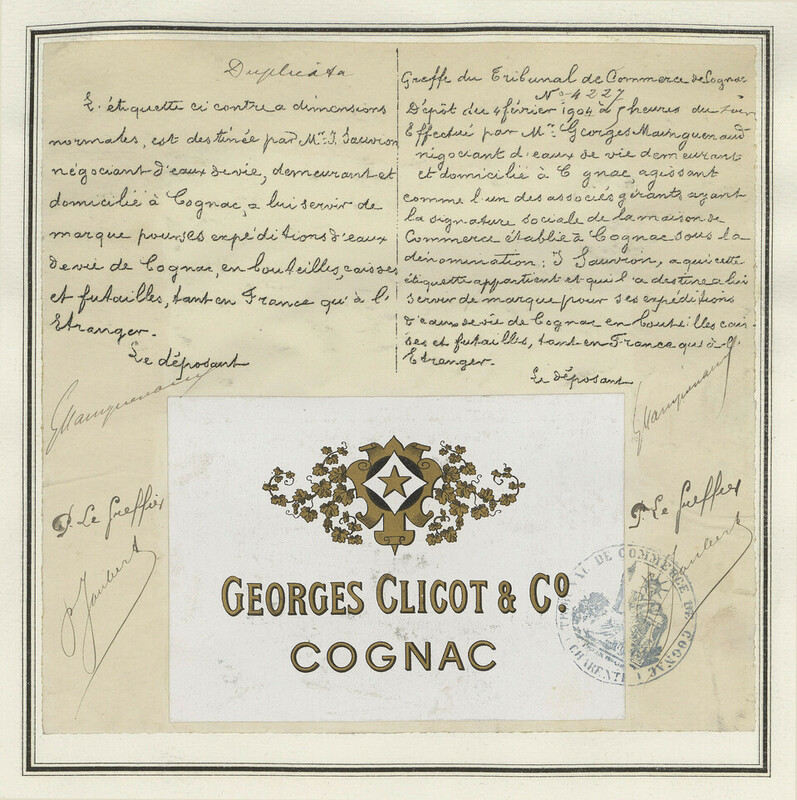 Duplicata
L'étiquette ci contre a dimensions
normales, est destinée par Mr. J. Sauvion
négociant d'eaux de vie, demeurant et
domicilié à Cognac, a lui servir de
marque pour ses expéditions d'eaux
de vie de Cognac, en bouteilles, caisses
et futailles, tant en France qu'à l'
Etranger.
Le déposant
GMainguenaud
P. Le Greffier
P Joubert
Greffe du Tribunal de Commerce de Cognac
No 4227
Dépôt du 4 février 1904 à 5 heures du soir
Effectué par Mr. Georges Mainguenaud
négociant d'eaux de vie demeurant
et domicilié à C gnac, agissant
comme l'un des associés gérants ayant
la signature sociale de la maison de
Commerce établie à Cognac sous la
dénomination: J Sauvion, a qui cette
étiquette appartient et qui l'a destine a lui
servir de marque pour ses expéditions
d'eaux de vie de Cognac en bouteilles cais-
ses et futailles, tant en France qu'à l'
Etranger.
Le déposant
GMainguenaud
P. Le Greffier
Joubert
GEORGES CLICOT & Co
COGNAC
TRIBUNAL DE COMMERCE DE COGNAC
(CHARENTE)